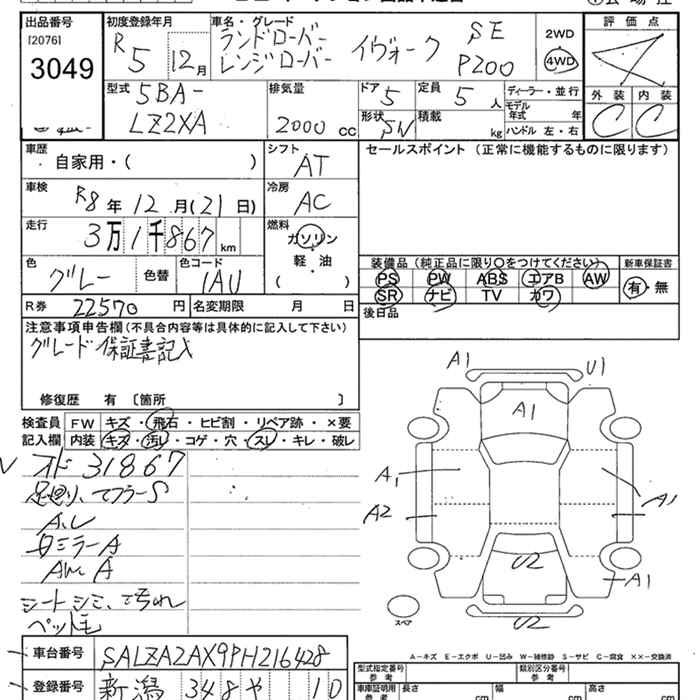 出品番号
[2076]
3049
初度登録年月
R5 12月
車名・グレード
ランドローバー
レンジローバー イヴォーク SE P200
2WD
4WD
評価点
外装 内装
C C
型式
5BA-
LZ2XA
排気量
2000 cc
ドア 5
定員 5 人
形状 SW
積載 kg
ディーラー・並行
モデル年式 年
ハンドル 左・右
車歴
自家用・( )
シフト
AT
セールスポイント (正常に機能するものに限ります)
車検
R8年 12月(21日)
冷房
AC
走行
3万1千867 km
燃料
ガソリン
軽・油
( )
色
グレー
色替
色コード
1AU
装備品 (純正品に限り〇をつけてください)
PS PW ABS エアB AW
SR ナビ TV カワ
新車保証書
有・無
R券 22570 円
名変期限 月 日
後日品
注意事項申告欄(不具合内容等は具体的に記入して下さい)
グレード保証書記入
修復歴 有 〔箇所 〕
検査員記入欄
FW キズ・飛石・ヒビ割・リペア跡・×要
内装 キズ・汚レ・コゲ・穴・スレ・キレ・破レ
オド 31867
足廻り、マフラーS
A.レ
ミラーA
AW A
シートシミ、汚れ
ペット毛
A1 U1
A1
A1 A1
A2
U2
A1
U2
スペア
A-キズ E-エクボ U-凹み W-補修跡 S-サビ C-腐食 ××-交換済
車台番号 SALZA2AX9PH216428
登録番号 新潟 348 や 10
型式指定番号
参考
類別区分番号
参考
車庫証明用
参考
長さ cm
幅 cm
高さ cm